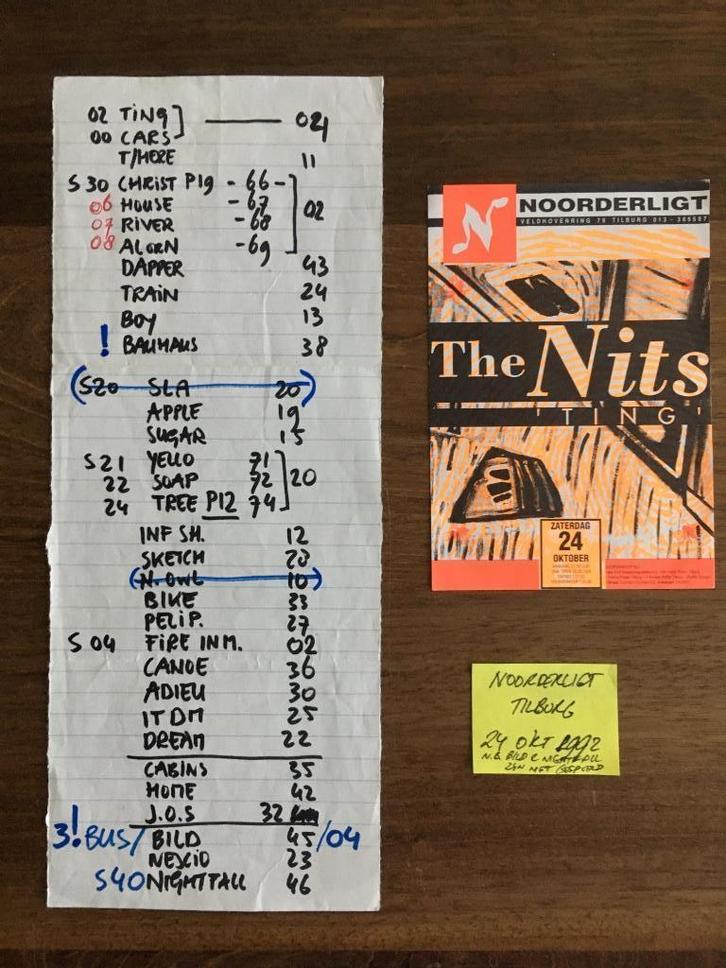 02 TING ] — 04
00 CARS
T/HERE 11
S 30 CHRIST P19 - 66 -
06 HOUSE - 67 ] 02
07 RIVER - 68
08 ALORN - 69
DAPPER 43
TRAIN 24
BOY 13
! BAUHAUS 38
(S20 SLA 20)
APPLE 19
SUGAR 15
S21 YELLO 71
22 SOAP 72 ] 20
24 TREE P12 74
INF SH. 12
SKETCH 20
(N. OWL 10)
BIKE 33
PELIP. 27
S 04 FIRE IN M. 02
CANOE 36
ADIEU 30
ITDM 25
DREAM 22
CABINS 35
HOME 42
J.O.S 32
3! BUS/ BILD 45 /04
NESCIO 23
S40 NIGHTFALL 46
N NOORDERLIGT
VELDHOVENRING 79 TILBURG 013 - 365587
The Nits
'TING'
ZATERDAG
24
OKTOBER
NOORDERLIGT
TILBURG
24 OKT 1992
N.B. BILD & NIGHTFALL
ZIJN NIET GESPEELD